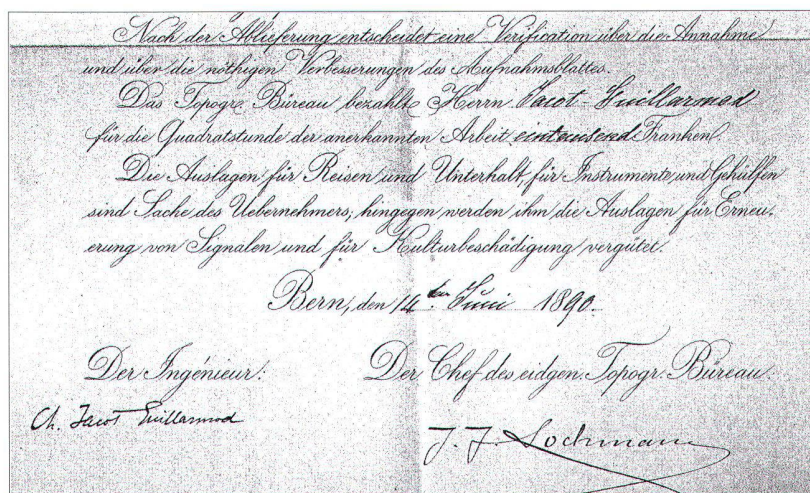 Nach der Ablieferung entscheidet eine Verification über die Annahme
und über die nöthigen Verbesserungen des Aufnahmsblattes.
Das Topogr. Büreau bezahlt Herrn Jacot-Guillarmod
für die Quadratstunde der anerkannten Arbeit eintausend Franken.
Die Auslagen für Reisen und Unterhalt, für Instrumente und Gehülfen
sind Sache des Uebernehmers; hingegen werden ihm die Auslagen für Erneu-
erung von Signalen und für Kulturbeschädigung vergütet.
Bern, den 14ten Juni 1890.
Der Ingénieur: Der Chef des eidgen. Topogr. Büreau:
Ch. Jacot Guillarmod
J. J. Lochmann